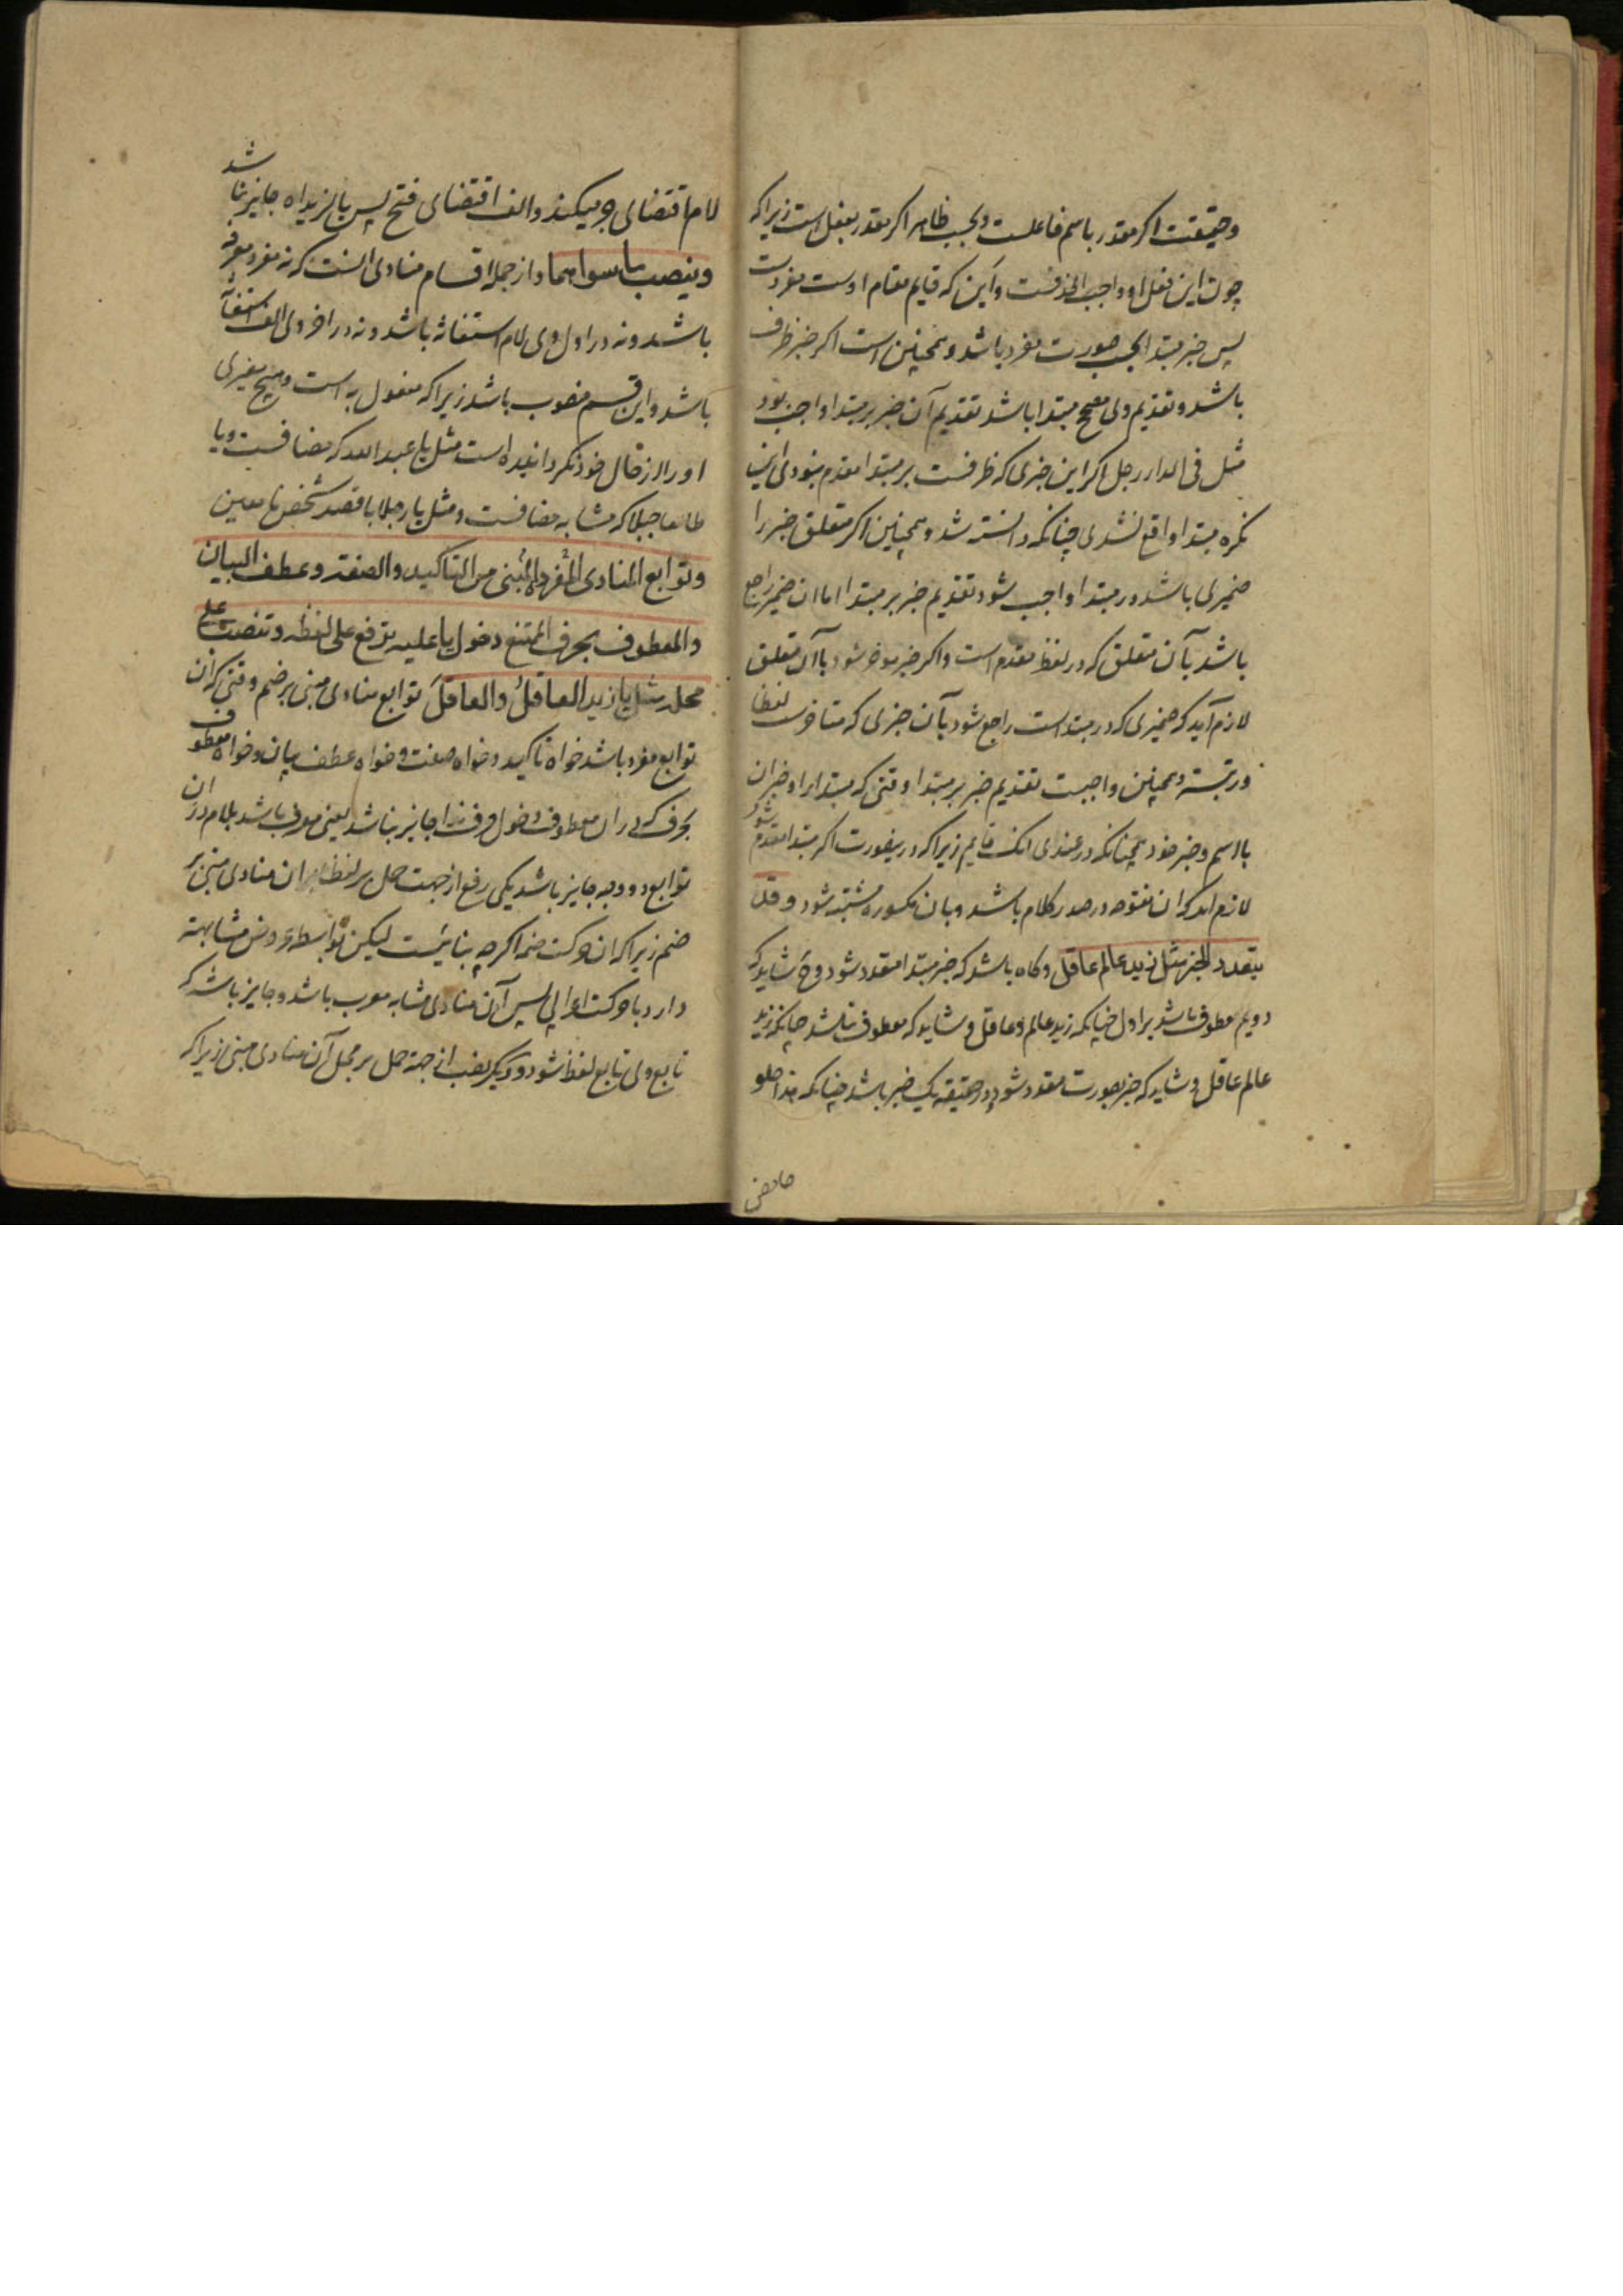 وحقیقت اکر مقدر باسم فاعلست وبحسب ظاهر اکر مقدر بفعل است زیراکه
چون این فعل او واجب الحذفست واین که قایم مقام اوست مفردست
پس خبر مبتدا بحسب صورت مفرد باشد وهمچنین است اکر خبر ظرف
باشد وتقدیم وی مصحح مبتدا باشد تقدیم آن خبر بر مبتدا واجب بود
مثل فی الدار رجل اکر این خبری که ظرفست بر مبتدا مقدم نبودی این
نکره مبتدا واقع نشدی چنانکه دانسته شد وهمچنین اکر متعلق خبر را
ضمیری باشد در مبتدا واجب شود تقدیم خبر بر مبتدا اما ان ضمیر راجع
باشد بآن متعلق که در لفظ مقدم است واکر خبر موخر شود باآن متعلق
لازم آید که ضمیری که در مبتداست راجع شود بآن خبری که متاخرست لفظا
ورتبسته وهمچنین واجبست تقدیم خبر بر مبتدا وقتی که مبتدا را و خبر ان
بااسم وخبر خود همچنانکه در عندی انک قایم زیراکه درینصورت اکر مبتدا مقدم شود
لازم اید که ان مفتوحه در صدر کلام باشد وبان مکسوره مشتبه شود وقد
یتعدد الخبر مثل زید عالم عاقل وکاه باشد که خبر مبتدا متعدد شود وح شاید که
دویم معطوف باشد بر اول چنانکه زید عالم وعاقل وشاید که معطوف نباشد چنانکه زید
عالم عاقل وشاید که خبر بصورت متعدد شود ودر حقیقة یک خبر باشد چنانکه هذا حلو
حامض
لام اقتضای جر میکند والف اقتضای فتح پس یا لزیداه جایز نباشد
وینصب ما سواهما واز جمله اقسام منادی انست که نه مفرد معرفه
باشد ونه در اول وی لام استغاثه باشد ونه در اخر وی الف استغاثه
باشد واین قسم منصوب باشد زیراکه مفعول به است وهیچ مغیری
او را از حال خود نکردانیده است مثل یا عبد الله که مضافست ویا
طالعا جبلا که مشابه مضافست ومثل یا رجلا با قصد شخص نا معین
وتوابع المنادی المفردة المبنی من التاکید والصفة وعطف البیان
والمعطوف بحرف الممتنع دخول یا علیه ترفع علی لفظه وتنصب علی
محله مثل یا زید العاقلُ والعاقلَ توابع منادی مبنی بر ضم وقتی که ان
توابع مفرد باشد خواه تاکید وخواه صفت وخواه عطف بیان وخواه معطوف
بحرف که در ان معطوف دخول حرف ندا جایز نباشد یعنی معرف باشد بلام در ان
توابع دو وجه جایز باشد یکی رفع از جهت حمل بر لفظ ان منادی مبنی بر
ضم زیراکه ان حرکت ضم اکرچه بنائیست لیکن بواسطه عروض مشابهته
دارد با حرکت اعرابی پس آن منادی مشابه معرب باشد وجایز باشد که
تابع وی تابع لفظ شود ودیکر نصب از جهة حمل بر محل آن منادی مبنی زیراکه